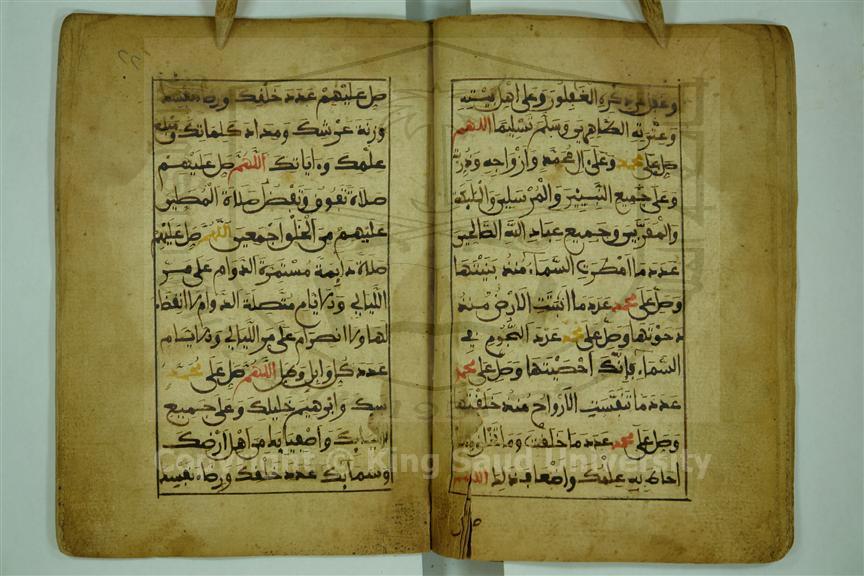 وغفل عن ذكره الغافلون وعلى اهل بيته
وعترته الطاهرين وسلم تسليما اللهم
صل على محمد وعلى ال محمد وازواجه وذريته
وعلى جميع النبيين والمرسلين والملئكة
والمقربين وجميع عباد الله الصالحين
عدد ما امطرت السماء منذ بنيتها
وصل على محمد عدد ما انبتت الارض منذ
دحوتها وصل على محمد عدد النجوم في
السماء فإنك أحصيتها وصل على محمد
عدد ما تنفست الارواح منذ خلقتها
وصل على محمد عدد ما خلقت وما تخلق وما
احاط به علمك وأضعاف ذلك اللهم
صل عليهم عدد خلقك ورضاء نفسك
وزنة عرشك ومداد كلماتك ومبلغ
علمك وءاياتك اللهم صل عليهم
صلاة تفوق وتفضل صلاة المصلين
عليهم من الخلق اجمعين اللهم صل عليهم
صلاة دايمة مستمرة الدوام على مر
الليالي والايام متصلة الدوام لا انقضاء
لها ولا انصرام على مر الليالي والايام
عدد كل وابل وطل اللهم صل على محمد
نبيك وابرهيم خليلك وعلى جميع
وأصفيايك من اهل أرضك
وسمايك عدد خلقك ورضاء نفسك
Copyright © King Saud University